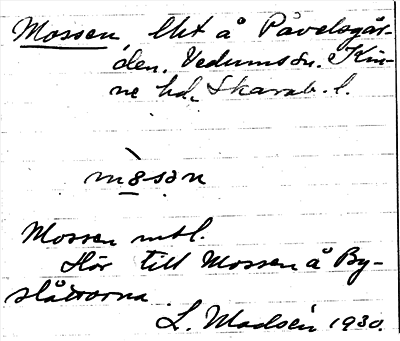 Mossen, Uti å Påvelsgår-
den. Vedums sn. Kin-
ne hd. Skarab. l.
mosən
Mossen mtl.
Hör till Mossen å By-
slättorna.
L. Madsén 1930.